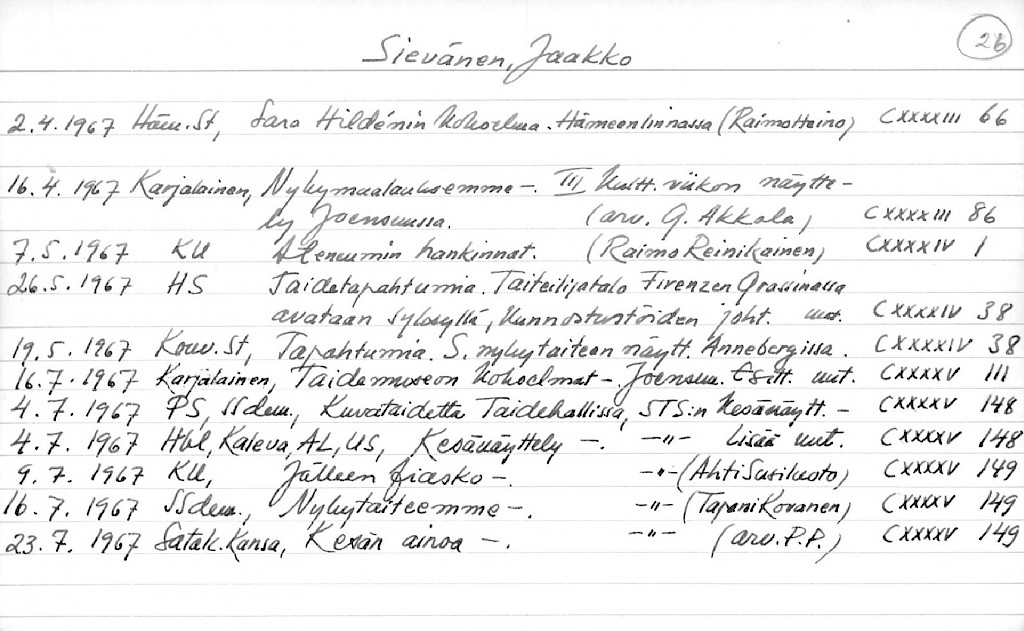 26
Sievänen, Jaakko
2.4.1967 Häm.St, Sara Hildénin kokoelma. Hämeenlinnassa (Raimo Heino) CXXXXIII 66
16.4.1967 Karjalainen, Nykymaalauksemme –. III Kultt. viikon näytte-
ly Joensuussa. (arv. Q. Akkola) CXXXXIII 86
7.5.1967 KU Ateneumin hankinnat. (Raimo Reinikainen) CXXXXIV 1
26.5.1967 HS Taidetapahtumia. Taiteilijatalo Firenzen Grassinassa
avataan syksyllä, kunnostustöiden joht. mt. CXXXXIV 38
19.5.1967 Kouv.St, Tapahtumia. S. nykytaiteen näytt. Annebergissa. CXXXXIV 38
16.7.1967 Karjalainen, Taidemuseon kokoelmat –. Joensuu. Esitt. mt. CXXXXV 111
4.7.1967 PS, SSdem., Kuvataidetta Taidehallissa, STS:n kesänäytt. – CXXXXV 148
4.7.1967 Hbl, Kaleva, AL, US, Kesänäyttely –. –"– Lisää mt. CXXXXV 148
9.7.1967 KU, Jälleen fiasko –. –"– (Ahti Susiluoto) CXXXXV 149
16.7.1967 SSdem., Nykytaiteemme –. –"– (Tapani Kovanen) CXXXXV 149
23.7.1967 Satak.Kansa, Kesän ainoa –. –"– (arv. P.P.) CXXXXV 149